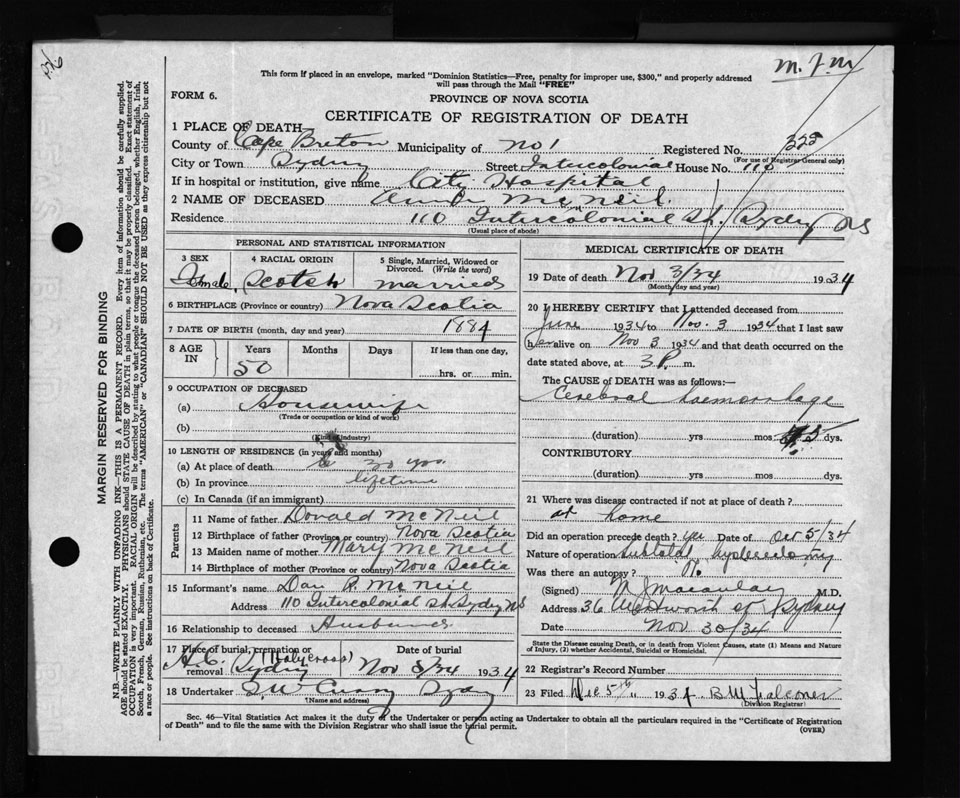 M. J. M
This form if placed in an envelope, marked "Dominion Statistics—Free, penalty for improper use, $300," and properly addressed
will pass through the Mail "FREE"
FORM 6.
PROVINCE OF NOVA SCOTIA
CERTIFICATE OF REGISTRATION OF DEATH
1 PLACE OF DEATH
County of Cape Breton Municipality of No 1 Registered No. 325
(For use of Registrar General only)
City or Town Sydney Street Intercolonial House No. 110
If in hospital or institution, give name City Hospital
2 NAME OF DECEASED McNeil.
Residence 110 Intercolonial St. Sydney NS
(Usual place of abode)
PERSONAL AND STATISTICAL INFORMATION
3 SEX 4 RACIAL ORIGIN 5 Single, Married, Widowed or
Divorced. (Write the word)
Female Scotch married
6 BIRTHPLACE (Province or country) Nova Scotia
7 DATE OF BIRTH (month, day and year) 1884
8 AGE IN Years Months Days If less than one day,
50 hrs. or min.
9 OCCUPATION OF DECEASED
(a) Housewife
(Trade or occupation or kind of work)
(b)
(Kind of industry)
10 LENGTH OF RESIDENCE (in years and months)
(a) At place of death 30 yrs.
(b) In province lifetime
(c) In Canada (if an immigrant)
Parents
11 Name of father Donald McNeil
12 Birthplace of father (Province or country) Nova Scotia
13 Maiden name of mother Mary McNeil
14 Birthplace of mother (Province or country) Nova Scotia
15 Informant's name Dan R. McNeil
Address 110 Intercolonial St. Sydney NS
16 Relationship to deceased Husband
17 Place of burial, cremation or removal Date of burial
Sydney (Holy Cross) Nov 5/34 1934
18 Undertaker Curry Sydney
(Name and address)
MEDICAL CERTIFICATE OF DEATH
19 Date of death Nov 3/34 1934
(Month, day and year)
20 I HEREBY CERTIFY that I attended deceased from
June 1934 to Nov. 3 1934 that I last saw
her alive on Nov 3 1934 and that death occurred on the
date stated above, at 3 P. m.
The CAUSE of DEATH was as follows:—
Cerebral haemorrhage
(duration) yrs mos dys.
CONTRIBUTORY
(duration) yrs mos. dys.
21 Where was disease contracted if not at place of death?
at home
Did an operation precede death? yes Date of Oct 5/34
Nature of operation subtotal
Was there an autopsy? No
(Signed) N J Macaulay M.D.
Address 36 Wentworth St Sydney
Date Nov 30/34
State the Disease causing Death, or in death from Violent Causes, state (1) Means and Nature
of Injury, (2) whether Accidental, Suicidal or Homicidal.
22 Registrar's Record Number
23 Filed Dec 5th 1934 B M Falconer
(Division Registrar)
Sec. 46—Vital Statistics Act makes it the duty of the Undertaker or person acting as Undertaker to obtain all the particulars required in the "Certificate of Registration
of Death" and to file the same with the Division Registrar who shall issue the burial permit.
(OVER)
MARGIN RESERVED FOR BINDING
N.B.—WRITE PLAINLY WITH UNFADING INK—THIS IS A PERMANENT RECORD. Every item of information should be carefully supplied.
AGE should be stated EXACTLY. PHYSICIANS should STATE CAUSE OF DEATH in plain terms, so that it may be properly classified. Exact statement of
OCCUPATION is very important. RACIAL ORIGIN will be described by stating to what people or tongue the deceased person belonged, whether English, Irish,
Scotch, French, German, Russian, Ruthenian, etc. The terms "AMERICAN" or "CANADIAN" SHOULD NOT BE USED as they express citizenship but not
a race or people. See instructions on back of Certificate.